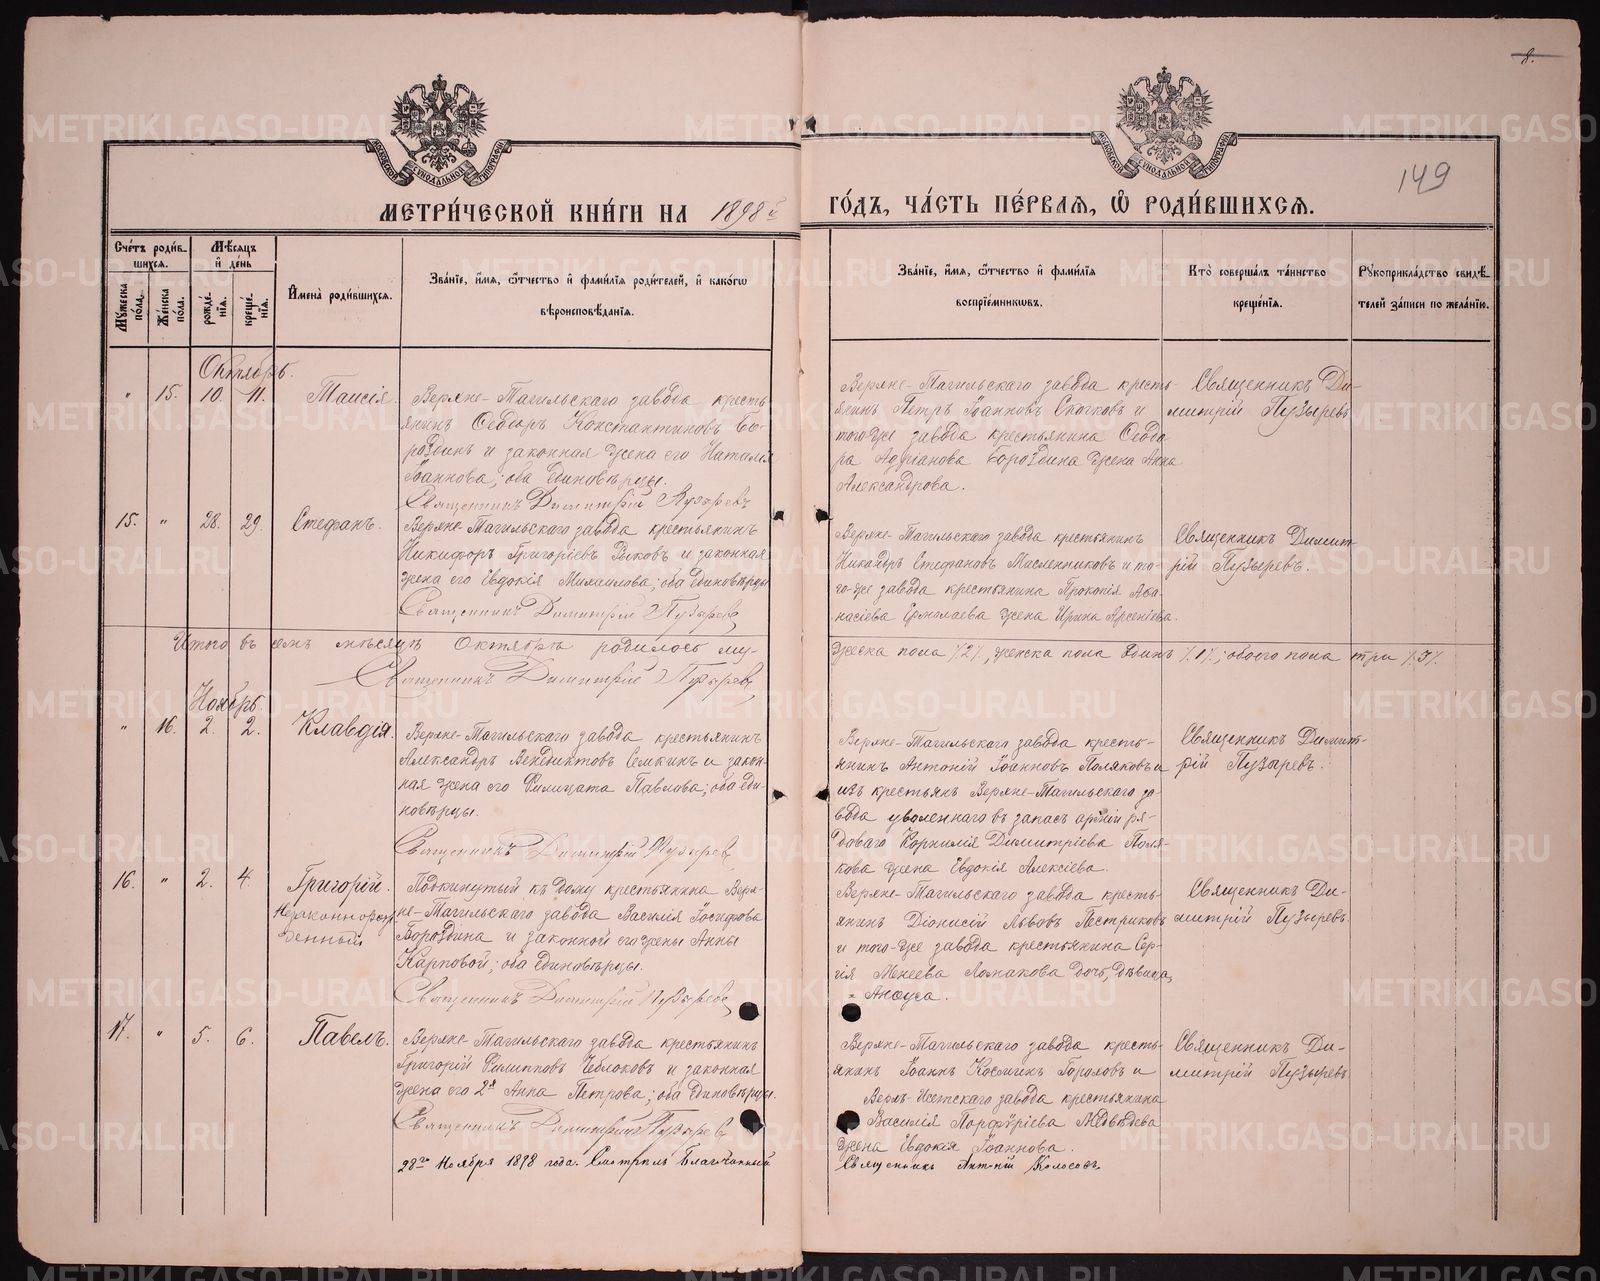 8.
149
МОСКОВСКОЙ СѴНОДАЛЬНОЙ ТИПОГРАФІИ
МОСКОВСКОЙ СѴНОДАЛЬНОЙ ТИПОГРАФІИ
МЕТРИ́ЧЕСКОЙ КНИ́ГИ НА 1898й
ГО́ДЪ, ЧА́СТЬ ПЕ́РВАѦ, Ѡ҆ РОДИ́ВШИХСѦ.
Сче́тъ роди́в-
шихсѧ.
Мужеска по́ла.
Же́нска по́ла.
Мѣ́сѧцъ и҆ де́нь
рожде́-нїѧ.
креще́-нїѧ.
И҆мена̀ роди́вшихсѧ.
Зва́нїе, и҆́мѧ, ѻ҆́тчество и҆ фами́лїѧ роди́телей, и҆ како́гѡ
вѣроисповѣ́данїѧ.
Зва́нїе, и҆́мѧ, ѻ҆́тчество и҆ фами́лїѧ
воспрїе́мникѡвъ.
Кто̀ соверша́лъ та́инство
креще́нїѧ.
Рꙋкоприкла́дство свидѣ́-
телей за́писи по жела́нїю.
Октябрь.
" 15. 10. 11. Таисія.
Верхне-Тагильскаго завода кресть
янинъ Ѳедоръ Константиновъ Бо-
роздинъ и законная жена его Наталія
Іоаннова; оба единовѣрцы.
Священникъ Димитрій Пузыревъ
Верхне-Тагильскаго завода кресть-
янинъ Петръ Іоанновъ Скочковъ и
того-же завода крестьянина Ѳедо
ра Адріанова Бороздина жена Анна
Александрова.
Священникъ Ди-
митрій Пузыревъ
15. " 28. 29. Стефанъ.
Верхне-Тагильскаго завода крестьянинъ
Никифоръ Григоріевъ Рыковъ и законная
жена его Евдокія Михаилова; оба единовѣрцы
Священникъ Димитрій Пузыревъ
Верхне-Тагильскаго завода крестьянинъ
Никандръ Стефановъ Масленниковъ и то-
го-же завода крестьянина Прокопія Аѳа-
насіева Ермолаева жена Ирина Арсеніева.
Священникъ Димит-
рій Пузыревъ.
Итого въ семъ мѣсяцѣ Октябрѣ родилось му-
жеска пола /2/, женска пола одинъ /1/; обоего пола три /3/.
Священникъ Димитрій Пузыревъ
Ноябрь.
" 16. 2. 2. Клавдія.
Верхне-Тагильскаго завода крестьянинъ
Александръ Венедиктовъ Семкинъ и закон-
ная жена его Филицата Павлова; оба еди-
новѣрцы.
Священникъ Димитрій Пузыревъ
Верхне-Тагильскаго завода кресть-
янинъ Антоній Іоанновъ Поляковъ и
изъ крестьянъ Верхне-Тагильскаго за-
вода уволеннаго въ запасъ арміи ря-
доваго Корнилія Димитріева Поля-
кова жена Евдокія Алексіева.
Священникъ Димит-
рій Пузыревъ.
16. " 2. 4. Григорій.
Незаконнорож
денный
Подкинутый къ дому крестьянина Верх-
не-Тагильскаго завода Василія Іосифова
Бороздина и законной его жены Анны
Карповой; оба единовѣрцы.
Священникъ Димитрій Пузыревъ
Верхне-Тагильскаго завода кресть-
янинъ Діонисій Львовъ Пестриковъ
и того-же завода крестьянина Сер-
гія Ломакова дочь, дѣвица,
Анѳуса.
Священникъ Ди-
митрій Пузыревъ.
17. " 5. 6. Павелъ.
Верхне-Тагильскаго завода крестьянинъ
Григорій Филипповъ Чеблоковъ и законная
жена его 2я Анна Петрова; оба единовѣрцы.
Священникъ Димитрій Пузыревъ
Верхне-Тагильскаго завода кресть-
янинъ Іоаннъ Космичъ и
Верхъ-Исетскаго завода крестьянина
Василія Порфиріева Медвѣдева
жена Евдокія Іоаннова.
Священникъ Ди-
митрій Пузыревъ
28го Ноября 1898 года. Смотрилъ Благочинный
Священникъ Антоній Колосовъ
METRIKI.GASO-URAL.RU